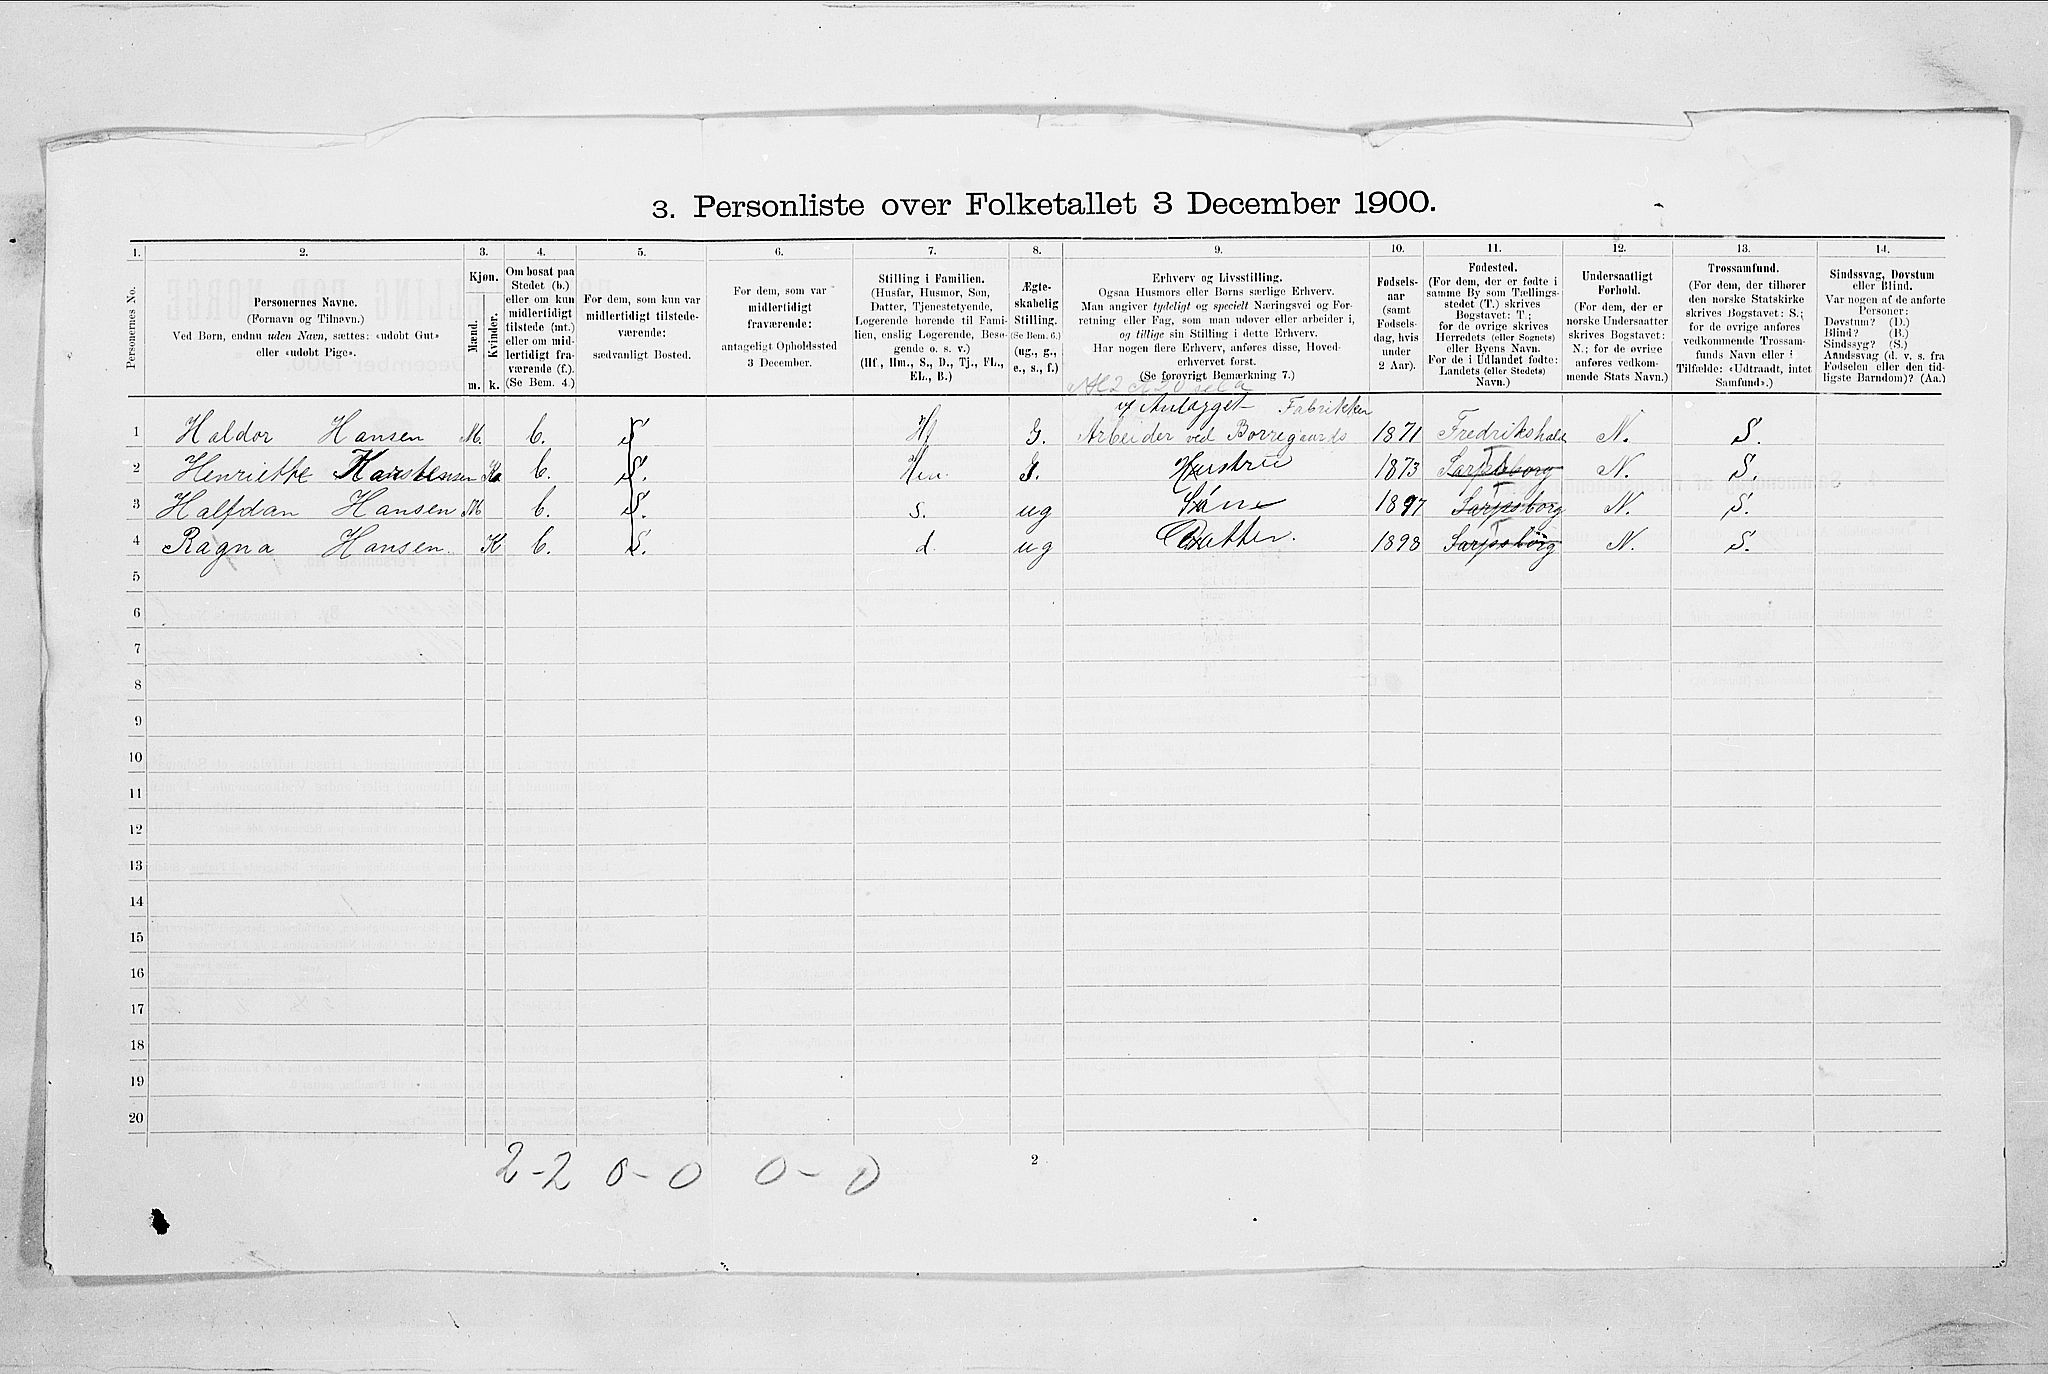 3. Personliste over Folketallet 3 December 1900.
1. 2. 3. 4. 5. 6. 7. 8. 9. 10. 11. 12. 13. 14.
Personernes No.
Personernes Navne.
(Fornavn og Tilnavn.)
Ved Børn, endnu uden Navn, sættes: «udøbt Gut»
eller «udøbt Pige».
Kjøn.
Mænd.
Kvinder.
m. k.
Om bosat paa
Stedet (b.)
eller om kun
midlertidigt
tilstede (mt.)
eller om mid-
lertidigt fra-
værende (f.).
(Se Bem. 4.)
For dem, som kun var
midlertidigt tilstede-
værende:
sædvanligt Bosted.
For dem, som var
midlertidigt
fraværende:
antageligt Opholdssted
3 December.
Stilling i Familien.
(Husfar, Husmor, Søn,
Datter, Tjenestetyende,
Logerende hørende til Fami-
lien, enslig Logerende, Besø-
gende o. s. v.)
(Hf., Hm., S., D., Tj., FL.,
EL., B.)
Ægte-
skabelig
Stilling.
(Se Bem. 6.)
(ug., g.,
e., s., f.)
Erhverv og Livsstilling.
Ogsaa Husmors eller Børns særlige Erhverv.
Man angiver tydeligt og specielt Næringsvei og For-
retning eller Fag, som man udøver eller arbeider i,
og tillige sin Stilling i dette Erhverv.
Har nogen flere Erhverv, anføres disse, Hoved-
erhvervet først.
(Se forøvrigt Bemærkning 7.)
Fødsels-
aar
(samt
Fødsels-
dag, hvis
under
2 Aar).
Fødested.
(For dem, der er fødte i
samme By som Tællings-
stedet (T.) skrives
Bogstavet: T.;
for de øvrige skrives
Herredets (eller Sognets)
eller Byens Navn.
For de i Udlandet fødte:
Landets (eller Stedets)
Navn.)
Undersaatligt
Forhold.
(For dem, der er
norske Undersaatter
skrives Bogstavet:
N.; for de øvrige
anføres vedkom-
mende Stats Navn.)
Trossamfund.
(For dem, der tilhører
den norske Statskirke
skrives Bogstavet: S.;
for de øvrige anføres
vedkommende Trossam-
funds Navn eller i
Tilfælde: «Udtraadt, intet
Samfund».)
Sindssvag, Døvstum
eller Blind.
Var nogen af de anførte
Personer:
Døvstum? (D.)
Blind? (B.)
Sindssyg? (S.)
Aandssvag (d. v. s. fra
Fødselen eller den tid-
ligste Barndom)? (Aa.)
v/ Anlægget Fabrikker
1 Haldor Hansen M. b. S. Hf G. Arbeider ved Borregaards 1871 Fredrikshald N. S.
2 Henriette Karstensen K. b. S. Hm. G. Hustrue 1873 Sarpsborg T N. S.
3 Halfdan Hansen M b. S. s. ug Søne 1897 Sarpsborg T N. S.
4 Ragna Hansen. K b. S. d. ug Datter. 1898 Sarpsborg T N. S.
5
6
7
8
9
10
11
12
13
14
15
16
17
18
19
20
2-2 0-0 0-0
2